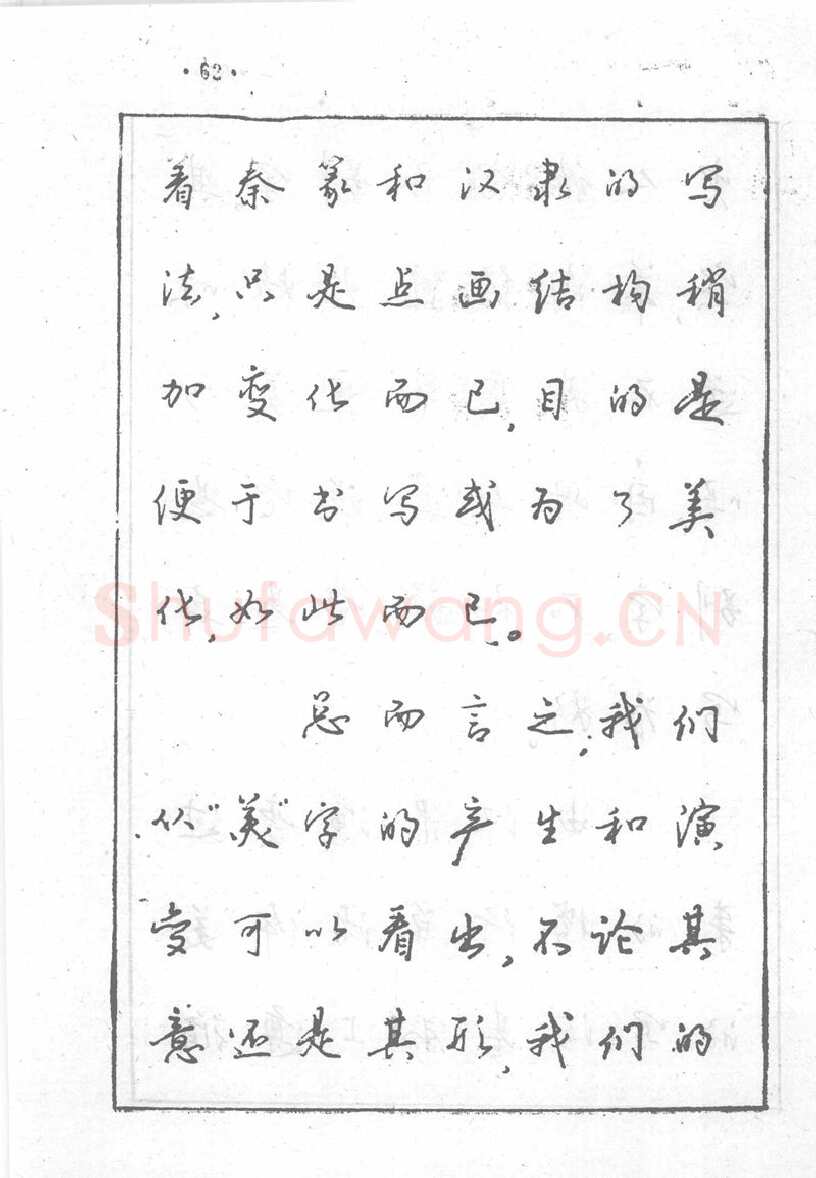 ·62·
着秦篆和汉隶的写
法,只是点画结构稍
加变化而已,目的是
便于书写或为了美
化,如此而已。
Shufawang.CN
总而言之,我们
从“美”字的产生和演
变可以看出,不论其
意还是其形,我们的